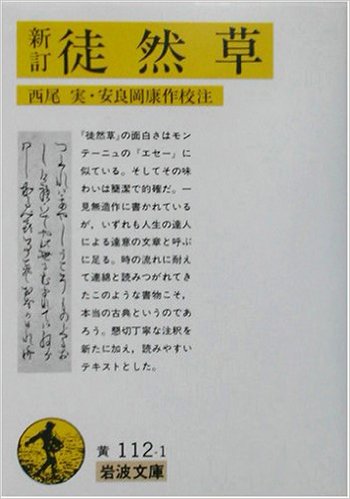 新訂 徒然草
西尾 実・安良岡康作校注
『徒然草』の面白さはモン
テーニュの『エセー』に
似ている。そしてその味
わいは簡潔で的確だ。一
見無造作に書かれている
が、いずれも人生の達人
による達意の文章と呼ぶ
に足る。時の流れに耐え
て連綿と読みつがれてき
たこのような書物こそ,
本当の古典というのであ
ろう。懇切丁寧な注釈を
新たに加え，読みやすい
テキストとした。
黄 112-1
岩波文庫